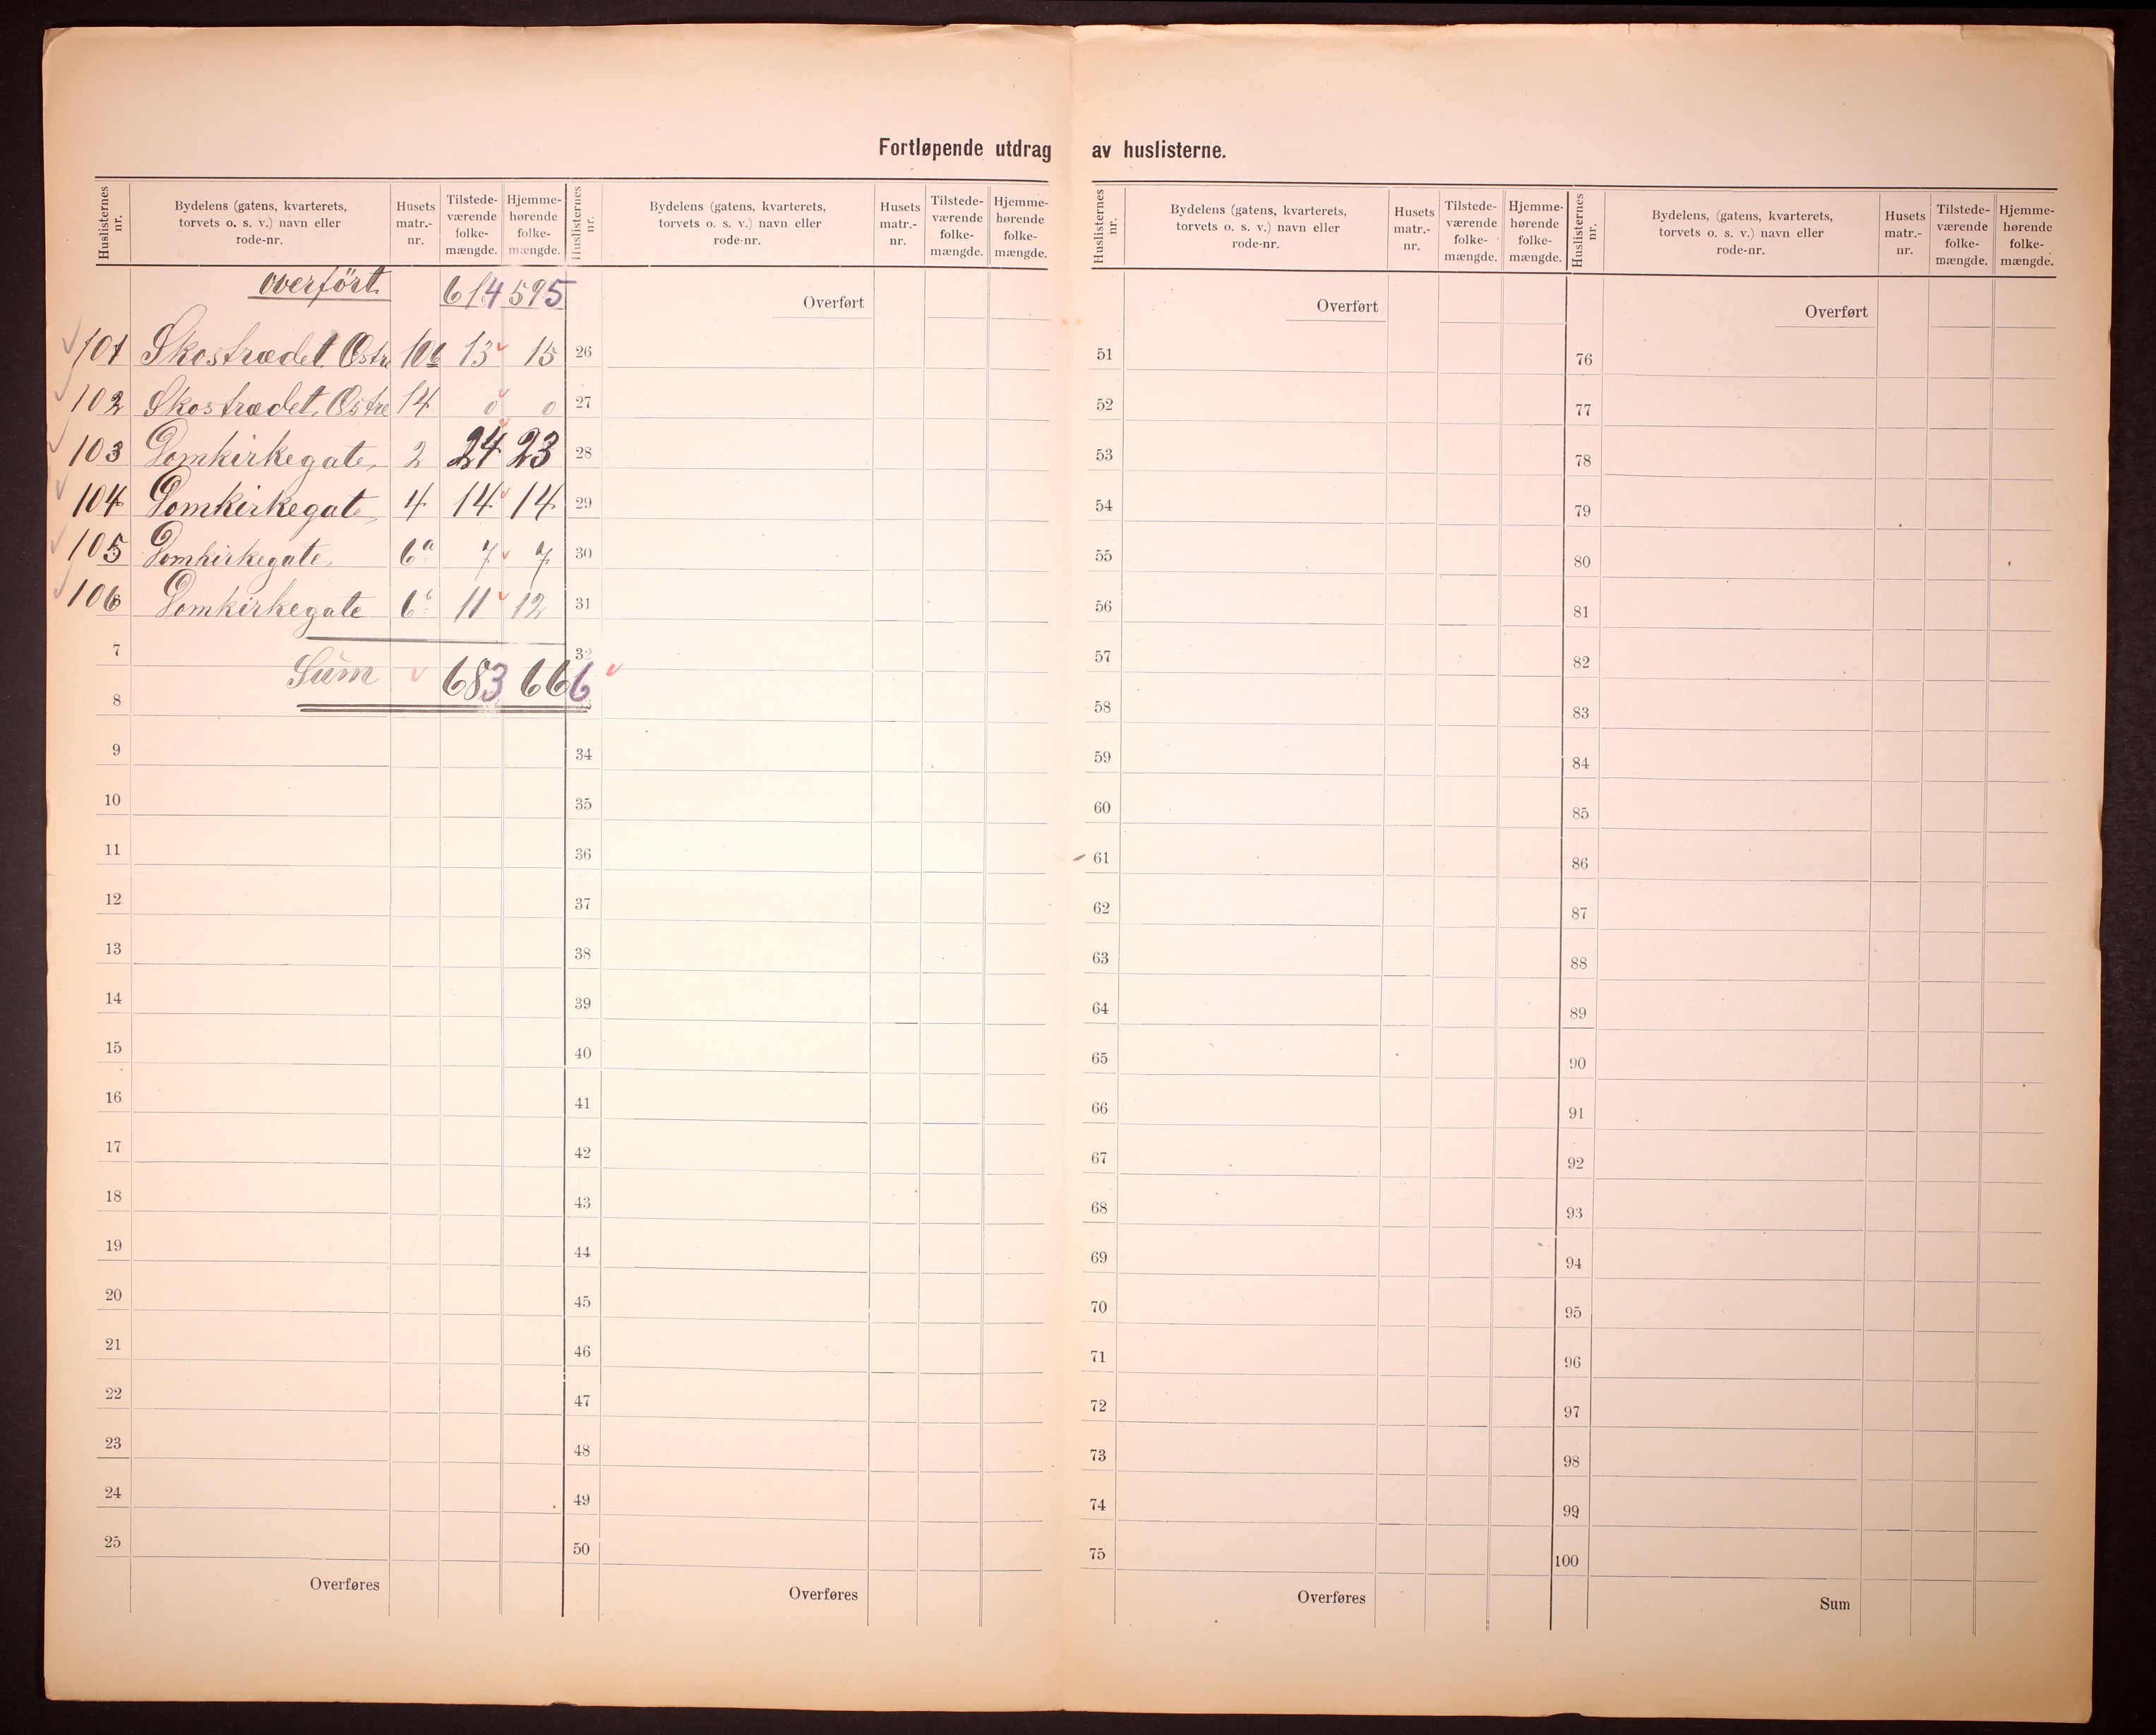 Fortløpende utdrag av huslisterne.
Huslisternes nr.
Bydelens (gatens, kvarterets, torvets o. s. v.) navn eller rode-nr.
Husets matr.-nr.
Tilstede-værende folke-mængde.
Hjemme-hørende folke-mængde.
overført. 614 595
101 Skostrædet Østre 10b 13 15
102 Skostrædet, Østre 14 0 0
103 Domkirkegate, 2 24 23
104 Domkirkegate, 4 14 14
105 Domkirkegate, 6a 7 7
106 Domkirkegate 6b 11 12
7
Sum 683 666
8
9
10
11
12
13
14
15
16
17
18
19
20
21
22
23
24
25
Overføres
Huslisternes nr.
Bydelens (gatens, kvarterets, torvets o. s. v.) navn eller rode-nr.
Husets matr.-nr.
Tilstede-værende folke-mængde.
Hjemme-hørende folke-mængde.
Overført
26
27
28
29
30
31
32
34
35
36
37
38
39
40
41
42
43
44
45
46
47
48
49
50
Overføres
Huslisternes nr.
Bydelens (gatens, kvarterets, torvets o. s. v.) navn eller rode-nr.
Husets matr.-nr.
Tilstede-værende folke-mængde.
Hjemme-hørende folke-mængde.
Overført
51
52
53
54
55
56
57
58
59
60
61
62
63
64
65
66
67
68
69
70
71
72
73
74
75
Overføres
Huslisternes nr.
Bydelens, (gatens, kvarterets, torvets o. s. v.) navn eller rode-nr.
Husets matr.-nr.
Tilstede-værende folke-mængde.
Hjemme-hørende folke-mængde.
Overført
76
77
78
79
80
81
82
83
84
85
86
87
88
89
90
91
92
93
94
95
96
97
98
99
100
Sum